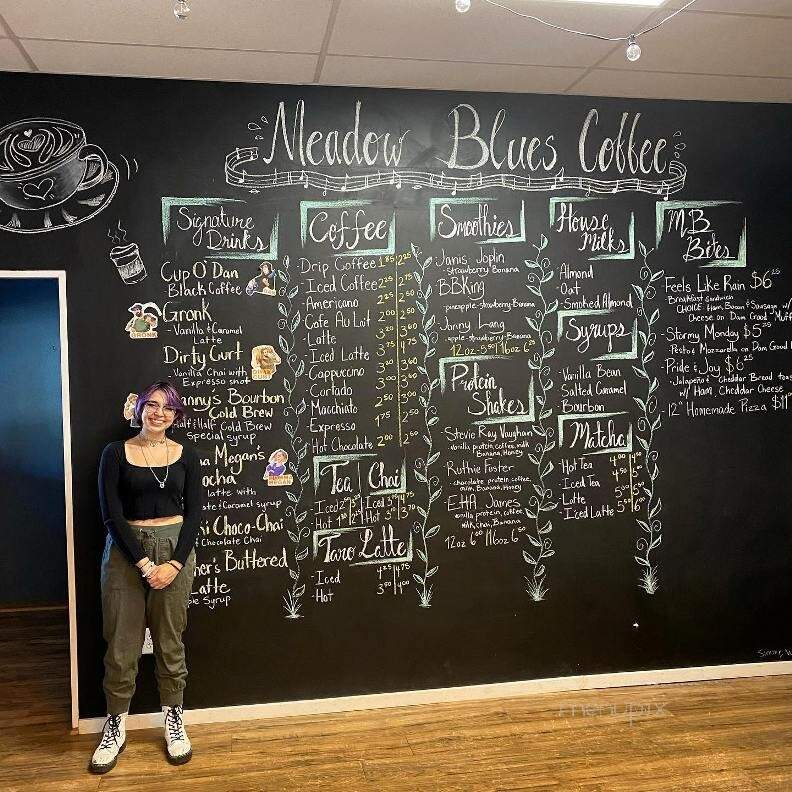 Meadow Blues Coffee
Signature
Drinks
Cup O'Dan
Black Coffee
Gronk
- Vanilla & Caramel
Latte
Dirty Curt
- Vanilla Chai with
Expresso shot
anny's Bourbon
Cold Brew
Half & Half Cold Brew
special syrup
Megan's
ocha
latte with
& Caramel syrup
Choco-Chai
Chocolate Chai
her's Buttered
Latte
ple Syrup
Coffee
- Drip Coffee 1.85 2.25
- Iced Coffee 2.25 2.50
- Americano
- Cafe Au Lait
- Latte
- Iced Latte
- Cappuccino
- Cortado
- Macchiato
- Expresso
- Hot Chocolate 2.00 2.50
Tea
- Iced
- Hot
Chai
Iced
Hot
Taro Latte
- Iced 4.25 4.75
- Hot 3.50 4.00
Smoothies
Janis Joplin
- Strawberry Banana
BBKing
- pineapple-strawberry-Banana
Jonny Lang
- apple-strawberry-Banana
12oz-5.50 16oz 6.25
Protein
Shakes
Stevie Ray Vaughan
vanilla protein, coffee, milk
Banana, Honey
Ruthie Foster
- chocolate protein, coffee,
Banana, Honey
Etta James
vanilla protein, coffee,
milk, Chai, Banana
12oz 6.00 16oz 6.50
House
Milks
Almond
- Oat
- Smoked Almond
Syrups
- Vanilla Bean
Salted Caramel
Bourbon
Matcha
- Hot Tea 4.00 4.50
- Iced Tea 4.50 5.00
- Latte 5.00 5.50
- Iced Latte 5.50 6.00
M.B
Bites
Feels Like Rain $6.25
- Breakfast Sandwich
CHOICE: Ham, Bacon & Sausage w/
Cheese on Dam Good
- Stormy Monday $5.25
Pesto & Mozzarella on Dam Good
- Pride & Joy $6.25
- Jalapeño & Cheddar Bread toas
w/ HAM, Cheddar Cheese
12" Homemade Pizza $11
GRONK
DIRTY CURT
MEGAN
menupix